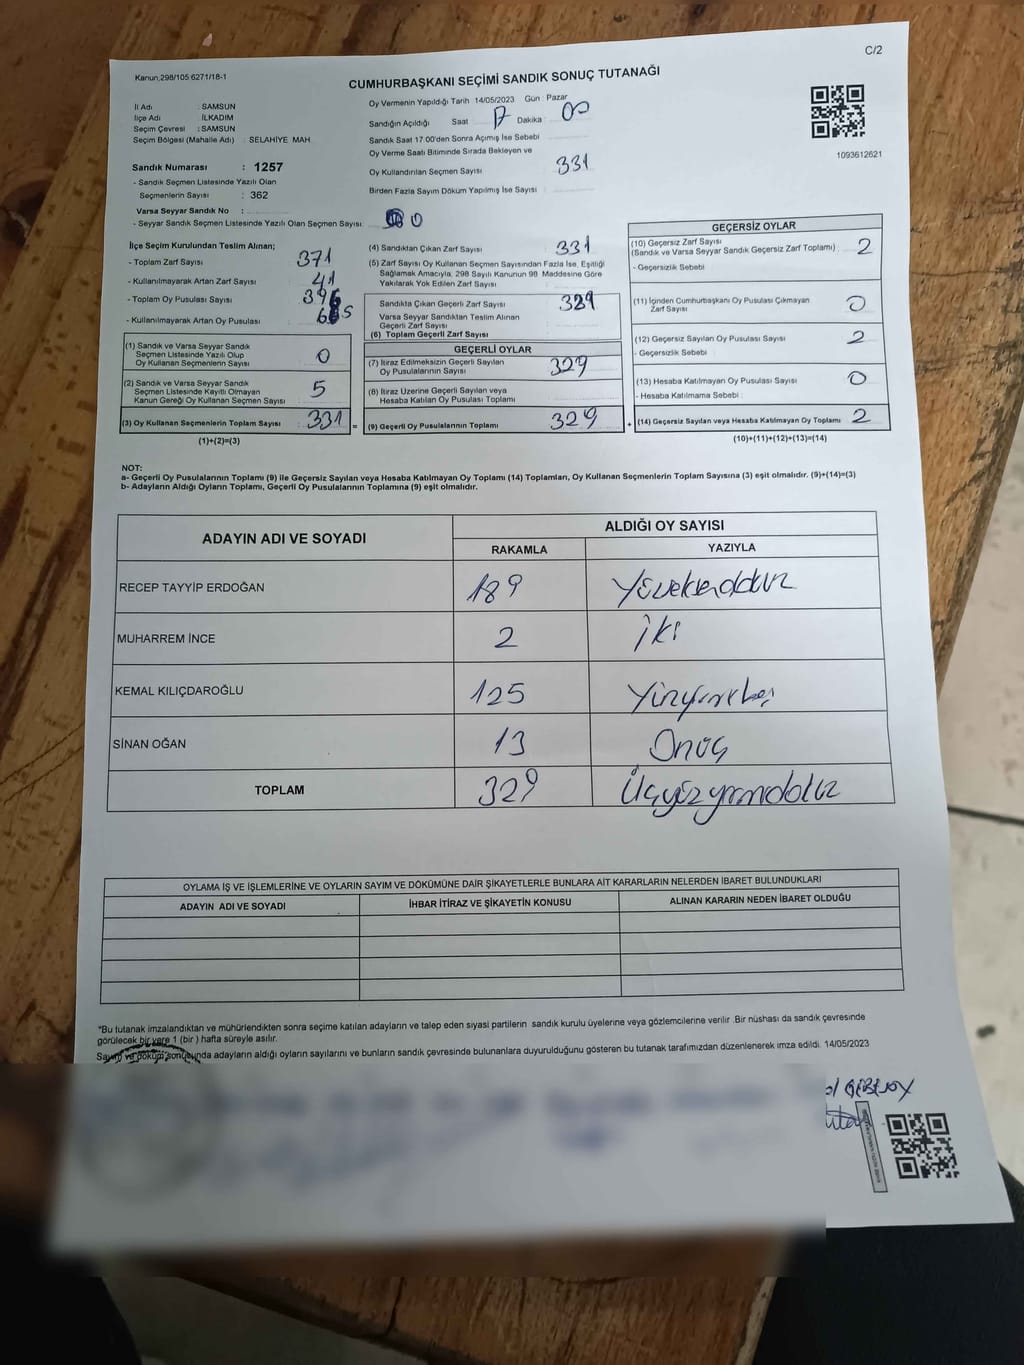 C/2
Kanun,298/105 6271/18-1
CUMHURBAŞKANI SEÇİMİ SANDIK SONUÇ TUTANAĞI
İl Adı : SAMSUN
İlçe Adı : İLKADIM
Seçim Çevresi : SAMSUN
Seçim Bölgesi (Mahalle Adı) : SELAHİYE MAH.
Oy Vermenin Yapıldığı Tarih 14/05/2023 Gün Pazar
Sandığın Açıldığı Saat 17 Dakika : 00
Sandık Saat 17 00'den Sonra Açımış İse Sebebi
Oy Verme Saati Bitiminde Sırada Bekleyen ve
Oy Kullandırılan Seçmen Sayısı 331
Birden Fazla Sayım Döküm Yapılmış İse Sayısı
1093612621
Sandık Numarası : 1257
- Sandık Seçmen Listesinde Yazılı Olan
Seçmenlerin Sayısı : 362
Varsa Seyyar Sandık No :
- Seyyar Sandık Seçmen Listesinde Yazılı Olan Seçmen Sayısı: 0
İlçe Seçim Kurulundan Teslim Alınan;
- Toplam Zarf Sayısı : 371
- Kullanılmayarak Artan Zarf Sayısı : 41
- Toplam Oy Pusulası Sayısı
- Kullanılmayarak Artan Oy Pusulası
(1) Sandık ve Varsa Seyyar Sandık
Seçmen Listesinde Yazılı Olup
Oy Kullanan Seçmenlerin Sayısı : 0
(2) Sandık ve Varsa Seyyar Sandık
Seçmen Listesinde Kayıtlı Olmayan
Kanun Gereği Oy Kullanan Seçmen Sayısı : 5
(3) Oy Kullanan Seçmenlerin Toplam Sayısı : 331 =
(1)+(2)=(3)
(4) Sandıktan Çıkan Zarf Sayısı : 331
(5) Zarf Sayısı Oy Kullanan Seçmen Sayısından Fazla İse, Eşitliği
Sağlamak Amacıyla, 298 Sayılı Kanunun 98 Maddesine Göre
Yakılarak Yok Edilen Zarf Sayısı
Sandıkta Çıkan Geçerli Zarf Sayısı : 329
Varsa Seyyar Sandıktan Teslim Alınan
Geçerli Zarf Sayısı
(6) Toplam Geçerli Zarf Sayısı
GEÇERLİ OYLAR
(7) İtiraz Edilmeksizin Geçerli Sayılan
Oy Pusulalarının Sayısı : 329
(8) İtiraz Üzerine Geçerli Sayılan veya
Hesaba Katılan Oy Pusulası Toplamı
(9) Geçerli Oy Pusulalarının Toplamı : 329 +
GEÇERSİZ OYLAR
(10) Geçersiz Zarf Sayısı
(Sandık ve Varsa Seyyar Sandık Geçersiz Zarf Toplamı) : 2
- Geçersizlik Sebebi
(11) İçinden Cumhurbaşkanı Oy Pusulası Çıkmayan
Zarf Sayısı : 0
(12) Geçersiz Sayılan Oy Pusulası Sayısı : 2
- Geçersizlik Sebebi
(13) Hesaba Katılmayan Oy Pusulası Sayısı : 0
- Hesaba Katılmama Sebebi
(14) Geçersiz Sayılan veya Hesaba Katılmayan Oy Toplamı : 2
(10)+(11)+(12)+(13)=(14)
NOT:
a- Geçerli Oy Pusulalarının Toplamı (9) ile Geçersiz Sayılan veya Hesaba Katılmayan Oy Toplamı (14) Toplamları, Oy Kullanan Seçmenlerin Toplam Sayısına (3) eşit olmalıdır. (9)+(14)=(3)
b- Adayların Aldığı Oyların Toplamı, Geçerli Oy Pusulalarının Toplamına (9) eşit olmalıdır.
ADAYIN ADI VE SOYADI
ALDIĞI OY SAYISI
RAKAMLA YAZIYLA
RECEP TAYYİP ERDOĞAN 189 Yüzseksendokuz
MUHARREM İNCE 2 İki
KEMAL KILIÇDAROĞLU 125 Yüzyirmibeş
SİNAN OĞAN 13 Onüç
TOPLAM 329 Üçyüzyirmidokuz
OYLAMA İŞ VE İŞLEMLERİNE VE OYLARIN SAYIM VE DÖKÜMÜNE DAİR ŞİKAYETLERLE BUNLARA AİT KARARLARIN NELERDEN İBARET BULUNDUKLARI
ADAYIN ADI VE SOYADI İHBAR İTİRAZ VE ŞİKAYETİN KONUSU ALINAN KARARIN NEDEN İBARET OLDUĞU
*Bu tutanak imzalandıktan ve mühürlendikten sonra seçime katılan adayların ve talep eden siyasi partilerin sandık kurulu üyelerine veya gözlemcilerine verilir .Bir nüshası da sandık çevresinde
görülecek bir yere 1 (bir ) hafta süreyle asılır.
Sayım ve döküm sonucunda adayların aldığı oyların sayılarını ve bunların sandık çevresinde bulunanlara duyurulduğunu gösteren bu tutanak tarafımızdan düzenlenerek imza edildi. 14/05/2023